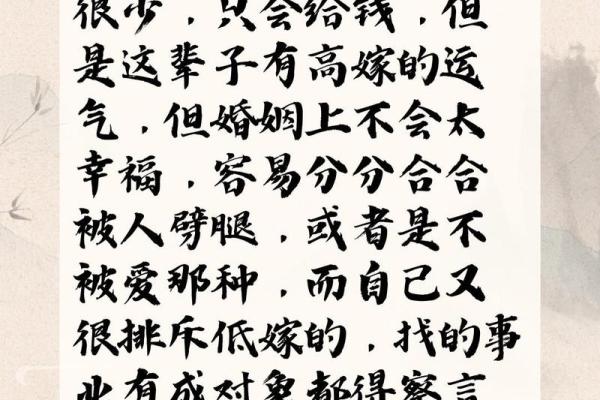 很少，只会给钱，但
是这辈子有高嫁的运
气，但婚姻上不会太
幸福，容易分分合合
被人劈腿，或者是不
被爱那种，而自己又
很排斥低嫁的，找的事
业有成对象都得察言